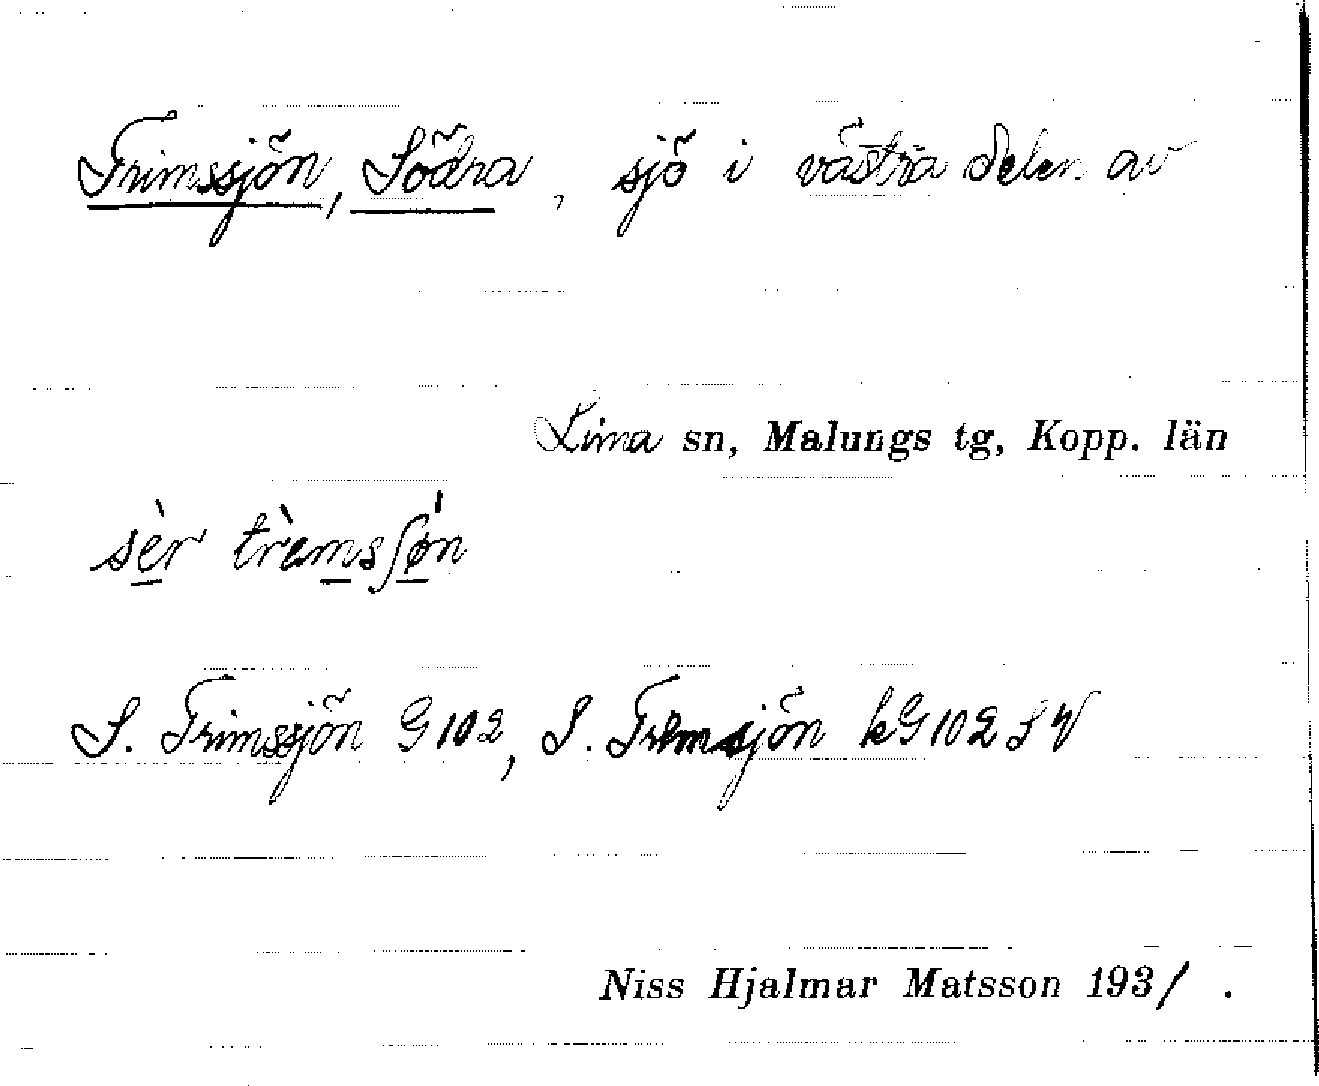 Trimssjön, Södra, sjö i västra delen av
Lima sn, Malungs tg, Kopp. län
sè̱r trèm̱sʃǿ̱n
S. Trimssjön G102, S. Tremsjön kG102SV
Niss Hjalmar Matsson 1931.